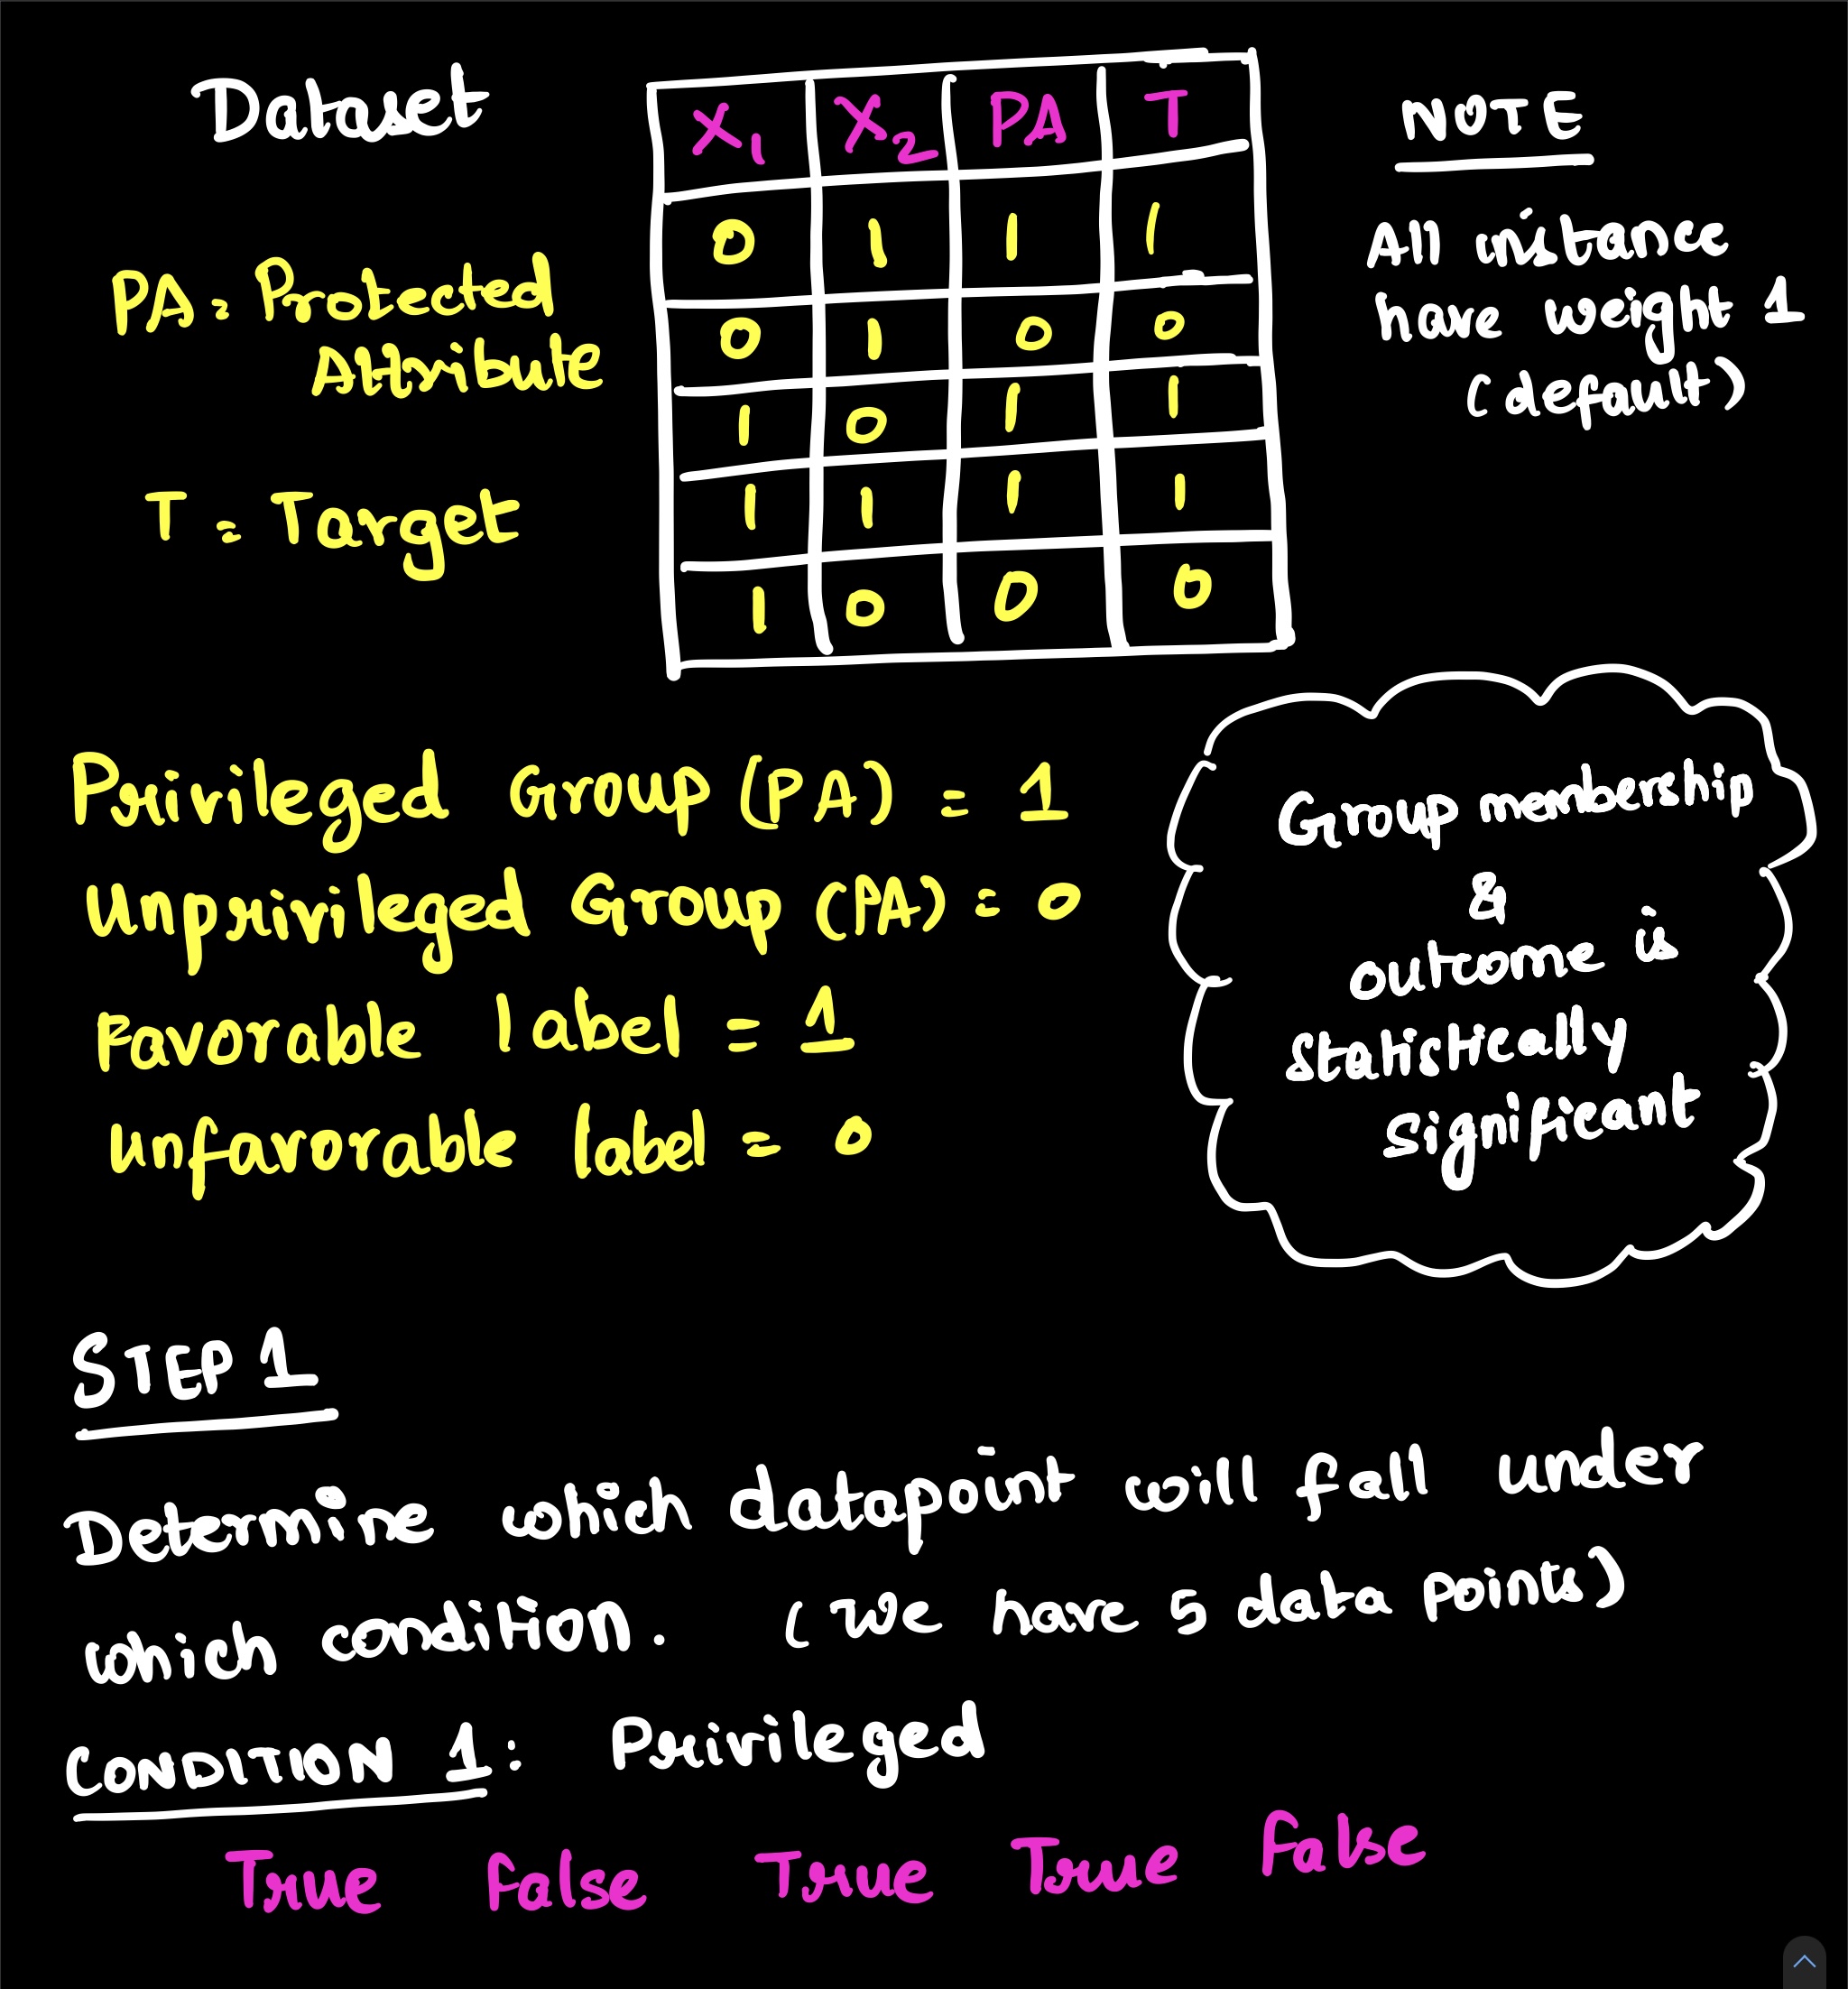 Dataset
X1 X2 PA T
0 1 1 1
0 1 0 0
1 0 1 1
1 1 1 1
1 0 0 0
PA = Protected
Attribute
T = Target
NOTE
All instance
have weight 1
(default)
Privileged Group (PA) = 1
Unprivileged Group (PA) = 0
Favorable label = 1
Unfavorable label = 0
Group membership
&
outcome is
statistically
significant
STEP 1
Determine which datapoint will fall under
which condition. (We have 5 data points)
CONDITION 1: Privileged
True False True True False